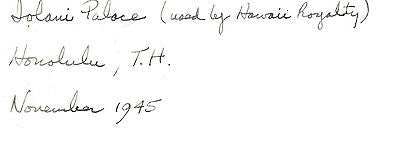 Iolani Palace (used by Hawaii Royality)
Honolulu, T.H.
November 1945